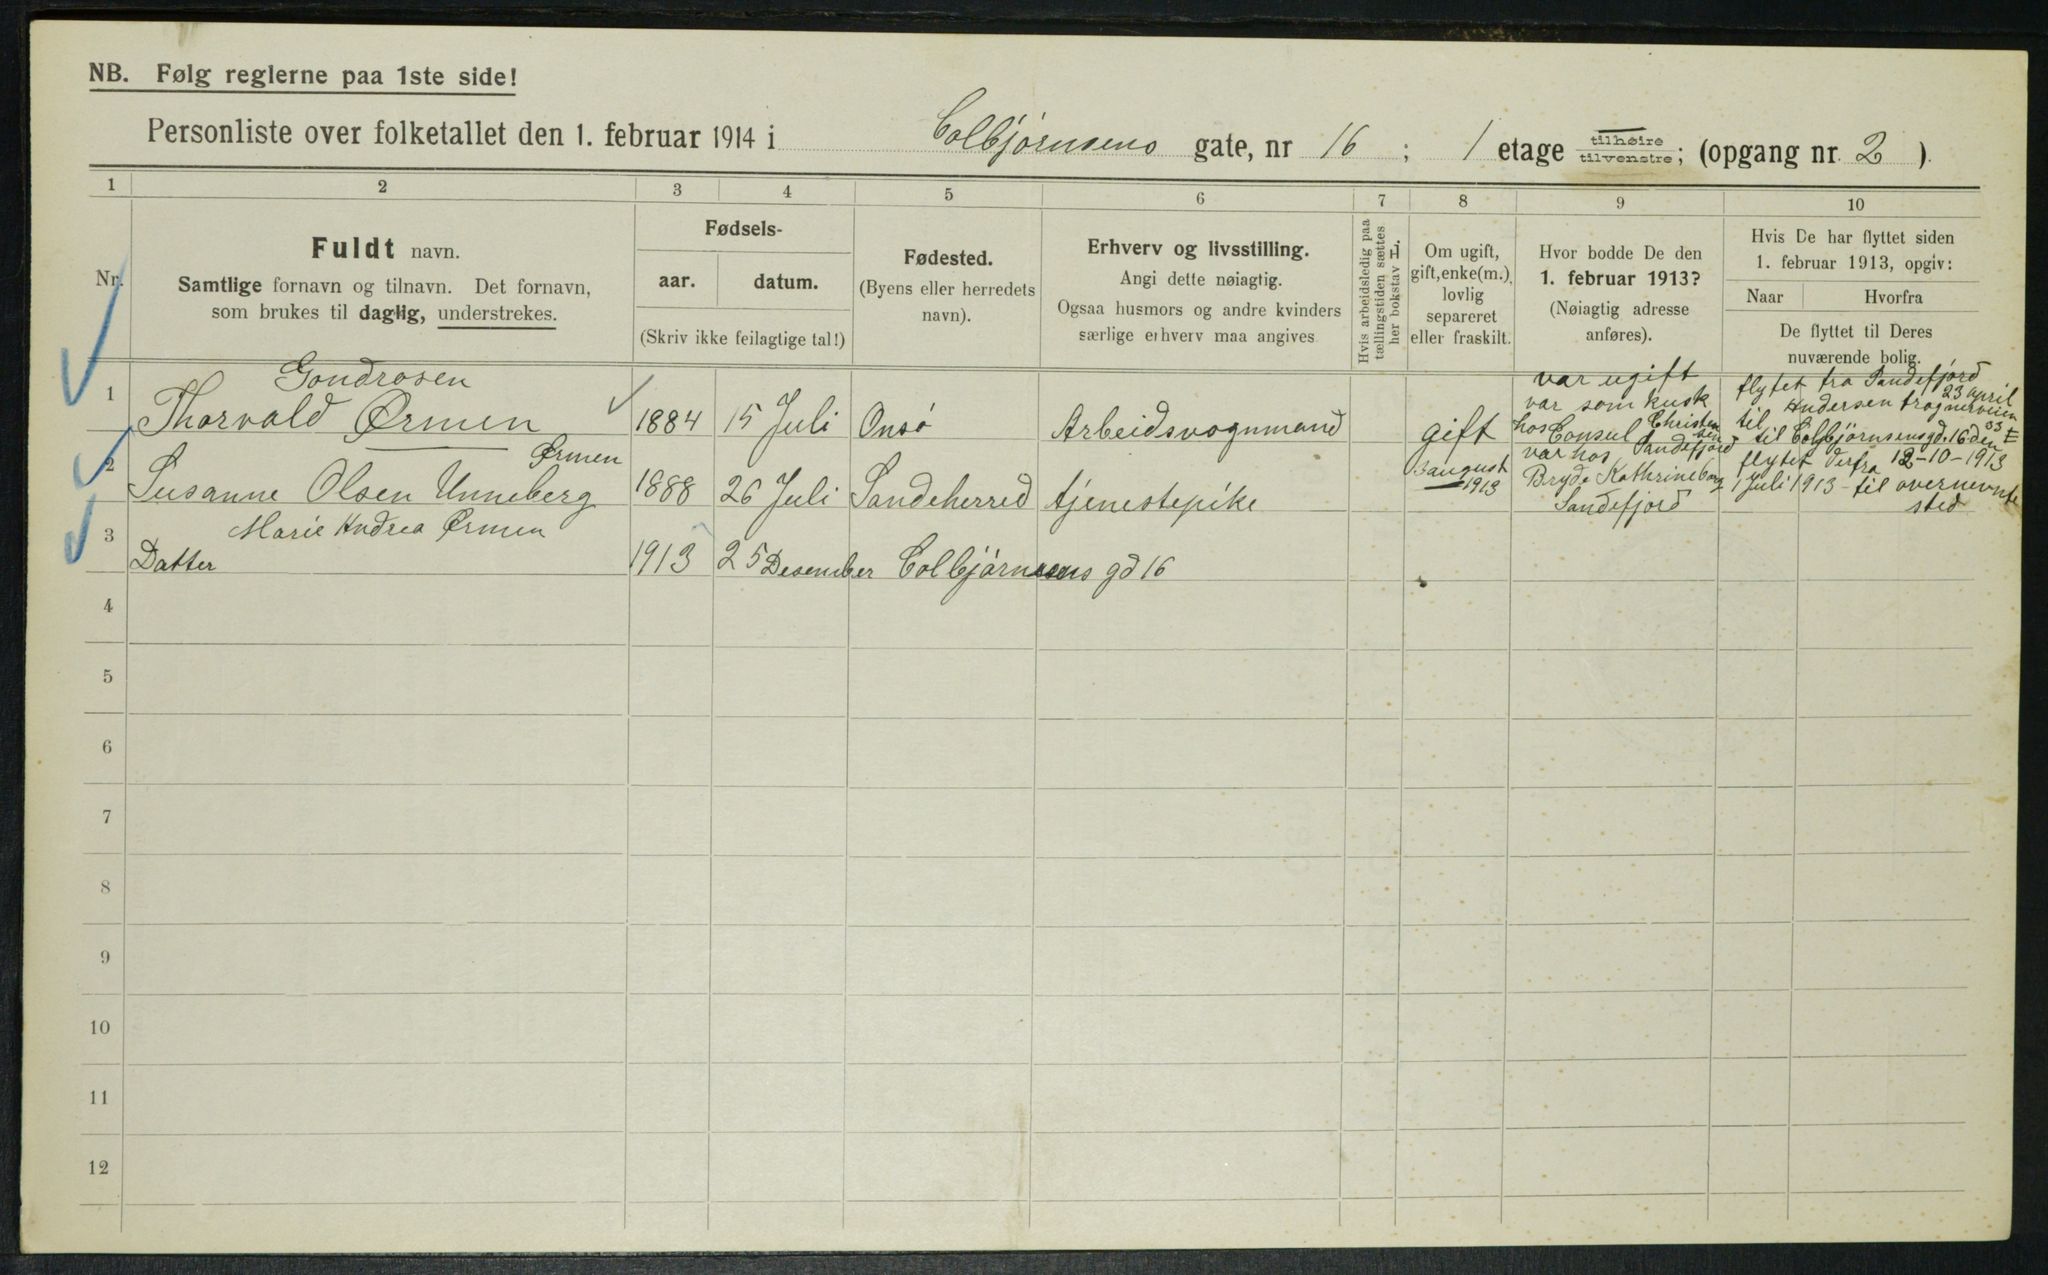 NB. Følg reglerne paa 1ste side!
Personliste over folketallet den 1. februar 1914 i Colbjørnsens gate, nr 16 ; 1 etage tilhøire tilvenstre; (opgang nr. 2 ).
1 2 3 4 5 6 7 8 9 10
Nr.
Fuldt navn.
Samtlige fornavn og tilnavn. Det fornavn,
som brukes til daglig, understrekes.
Fødsels-
aar. datum.
(Skriv ikke feilagtige tal!)
Fødested.
(Byens eller herredets
navn).
Erhverv og livsstilling.
Angi dette nøiagtig.
Ogsaa husmors og andre kvinders
særlige erhverv maa angives
Hvis arbeidsledig paa
tællingstiden sættes
her bokstav L
Om ugift,
gift, enke(m.),
lovlig
separeret
eller fraskilt.
Hvor bodde De den
1. februar 1913?
(Nøiagtig adresse
anføres).
Hvis De har flyttet siden
1. februar 1913, opgiv:
Naar Hvorfra
De flyttet til Deres
nuværende bolig.
Gondrosen
1 Thorvald Ørmen 1884 15 Juli Onsø Arbeidsvognmand gift
var ugift
var som kusk
hos Consul Christensen
Sandefjord
flytet fra Sandefjord
23 april
til Andersen frognerveien
33
til Colbjørnsensgd. 16 den
12-10-1913
Ørmen
2 Susanne Olsen Unneberg 1888 26 Juli Sandeherred tjenestepike
3 august
1913
var hos
Bryde Kathrineborg
Sandefjord
flytet derfra
1 Juli 1913 - til overnevnte
sted
Marie Andrea Ørmen
3 Datter 1913 25 Desember Colbjørnsens gd 16
4
5
6
7
8
9
10
11
12